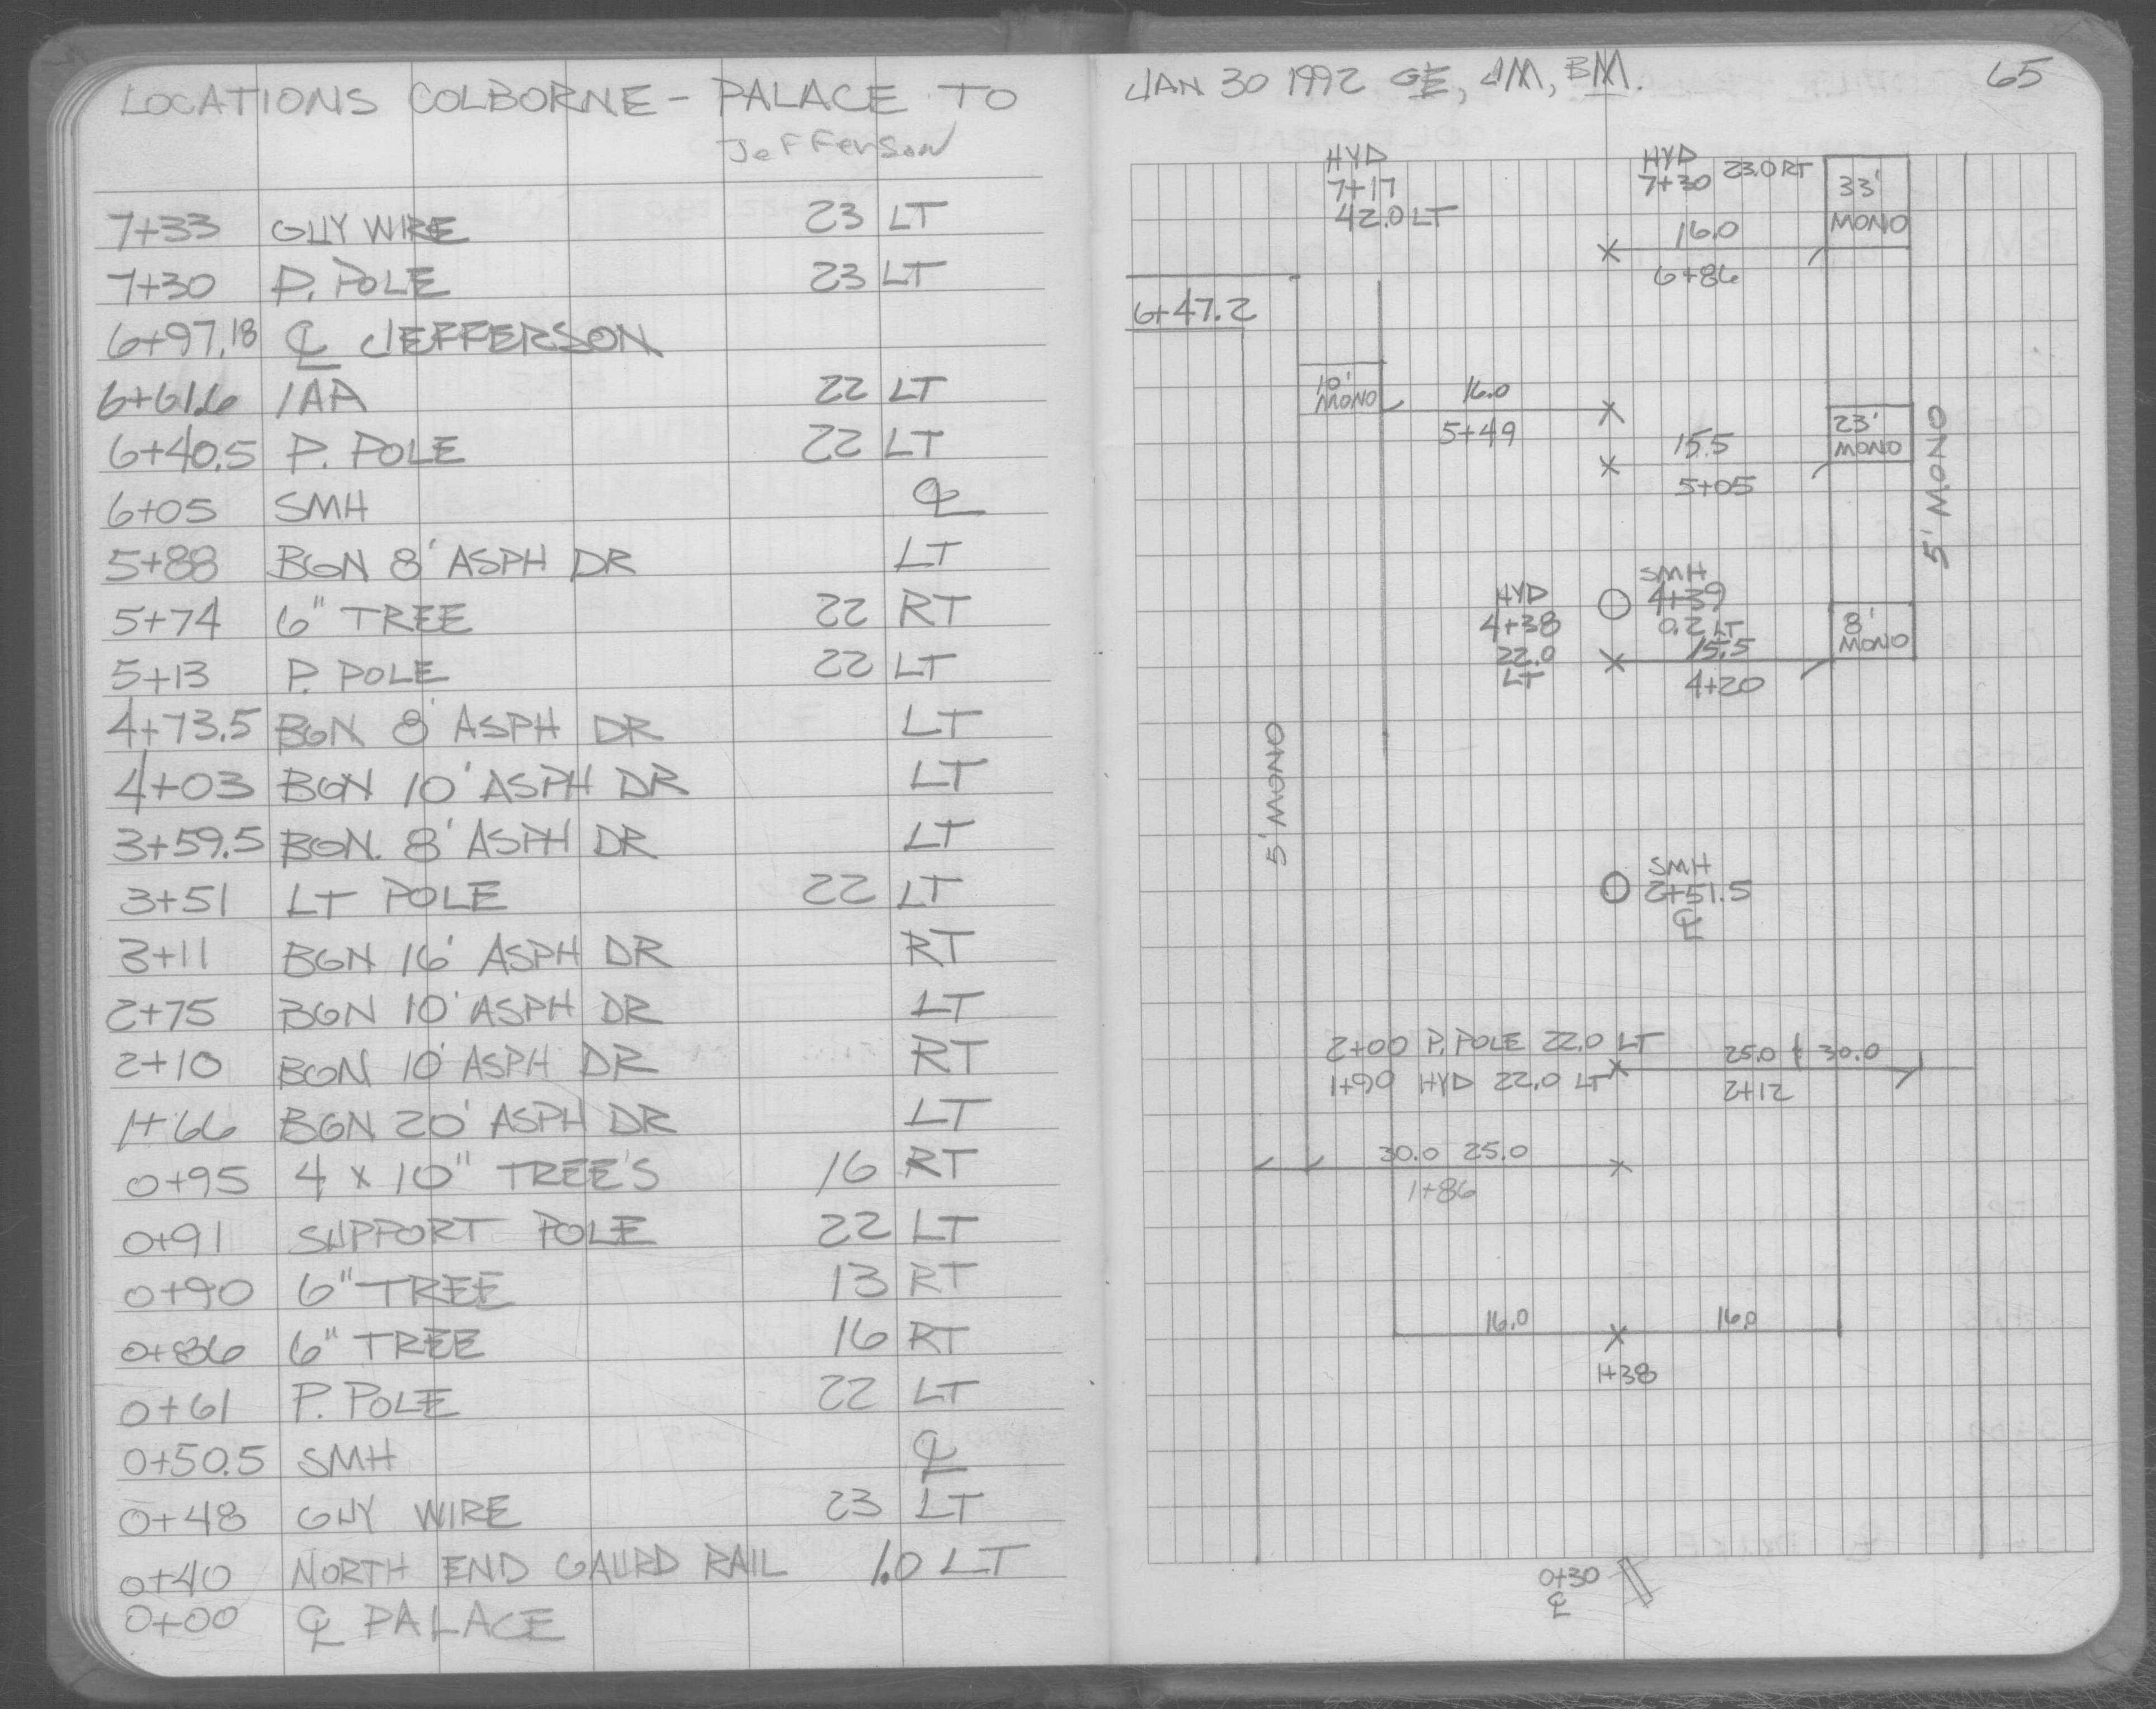 LOCATIONS COLBORNE - PALACE TO
Jefferson
7+33 GUY WIRE 23 LT
7+30 P. POLE 23 LT
6+97.18 ℄ JEFFERSON
6+61.6 1AA 22 LT
6+40.5 P. POLE 22 LT
6+05 SMH ℄
5+88 BGN 8' ASPH DR LT
5+74 6" TREE 22 RT
5+13 P. POLE 22 LT
4+73.5 BGN 8' ASPH DR LT
4+03 BGN 10' ASPH DR LT
3+59.5 BGN. 8' ASPH DR LT
3+51 LT POLE 22 LT
3+11 BGN 16' ASPH DR RT
2+75 BGN 10' ASPH DR LT
2+10 BGN 10' ASPH DR RT
1+66 BGN 20' ASPH DR LT
0+95 4 x 10" TREE'S 16 RT
0+91 SUPPORT POLE 22 LT
0+90 6" TREE 13 RT
0+86 6" TREE 16 RT
0+61 P. POLE 22 LT
0+50.5 SMH ℄
0+48 GUY WIRE 23 LT
0+40 NORTH END GAURD RAIL 1.0 LT
0+00 ℄ PALACE
JAN 30 1992 GE, JM, BM. 65
HYD
7+17
42.0 LT
HYD
7+30 23.0 RT
33'
MONO
16.0
6+86
6+47.2
10'
MONO
16.0
5+49
23'
MONO
15.5
5+05
5' MONO
HYD
4+38
22.0
LT
SMH
4+39
0.2 LT
15.5
4+20
8'
MONO
5' MONO
SMH
2+51.5
℄
2+00 P. POLE 22.0 LT
1+90 HYD 22.0 LT
25.0 30.0
2+12
30.0 25.0
1+86
16.0 16.0
1+38
0+30
℄